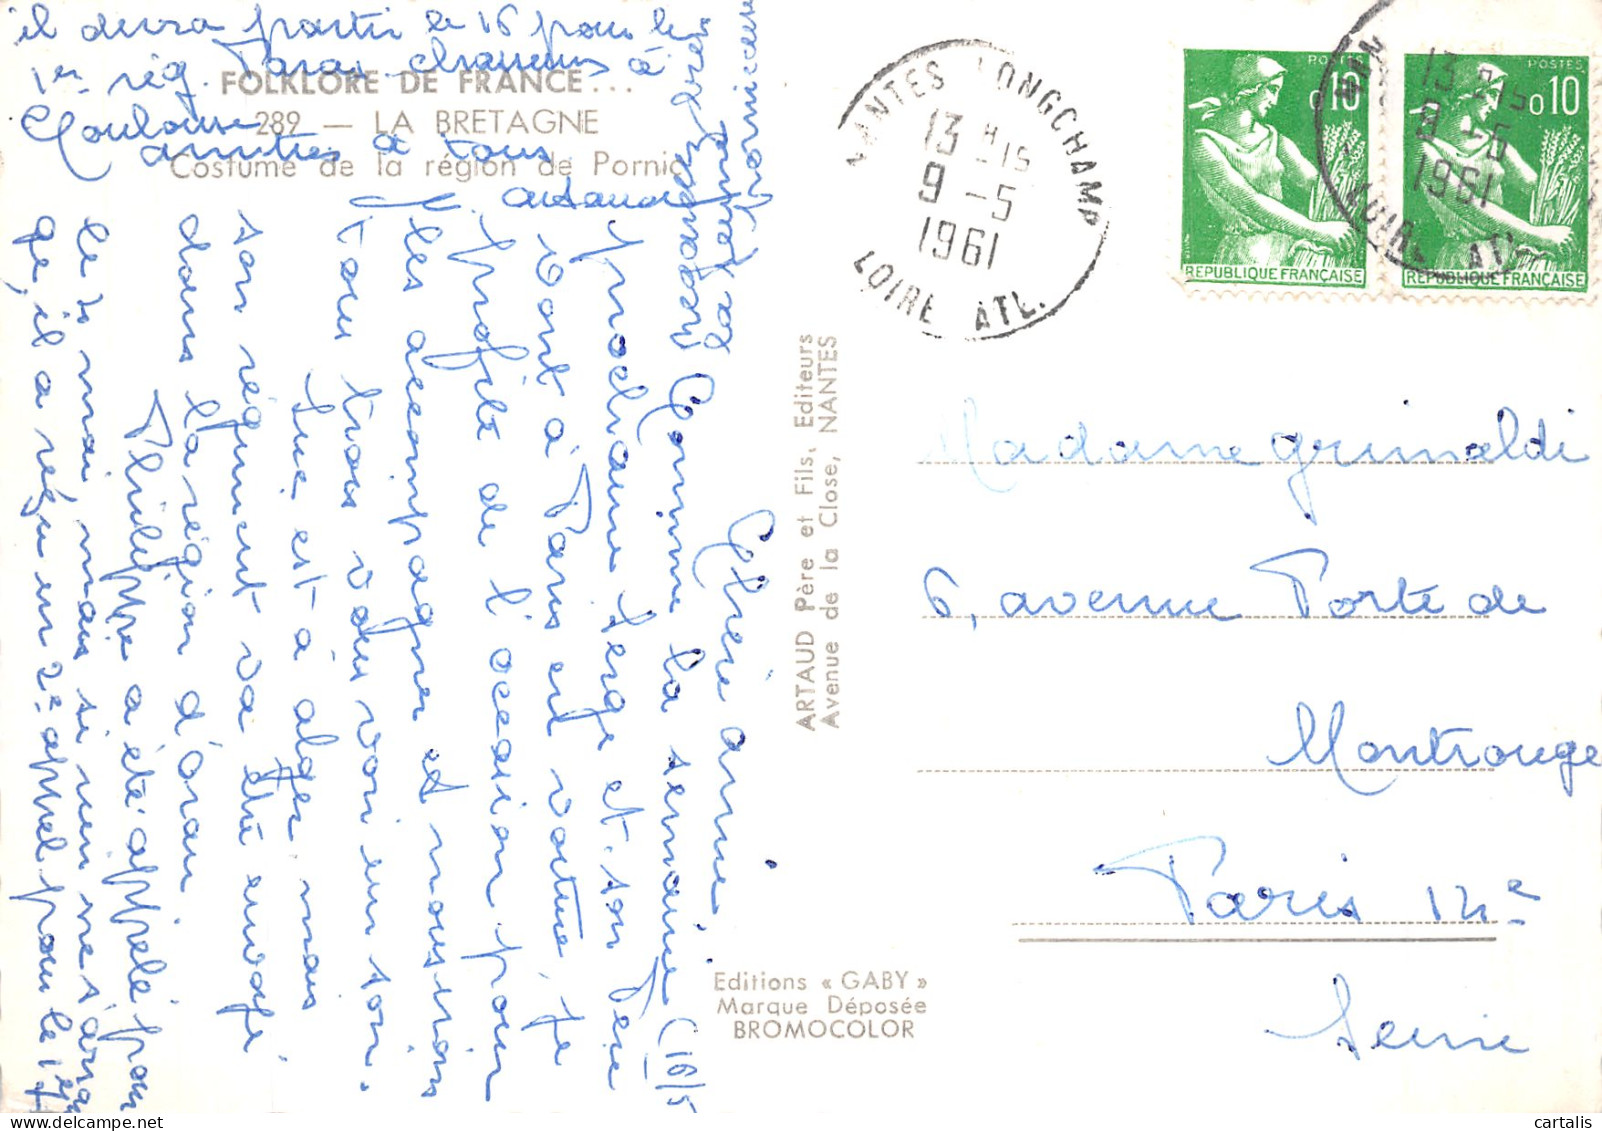 FOLKLORE DE FRANCE...
289 — LA BRETAGNE
Costume de la région de Pornic
Chère amie
Comme la semaine (16/5
prochaine Serge et son Père
vont à Paris en voiture, je
profite de l'occasion pour
les accompagner et nous irons
tous trois vous voir un soir.
Luc est à Alger mais
son régiment va être envoyé
dans la région d'Oran
Philippe a été appelé pour
le 2 mai, mais si rien ne s'arran
ge, il a reçu un 2e appel pour le 17
il devra partir le 16 pour le
1er rég. Paras. Chasseurs à
Toulouse
amitiés à tous
ARTAUD Père et Fils, Editeurs
Avenue de la Close, NANTES
Editions « GABY »
Marque Déposée
BROMOCOLOR
NANTES LONGCHAMP
13 H 15
9 - 5
1961
LOIRE ATL.
POSTES
0,10
REPUBLIQUE FRANÇAISE
POSTES
0,10
REPUBLIQUE FRANÇAISE
13 H 15
9 - 5
1961
LOIRE ATL.
Madame Grimaldi
6, avenue Porte de
Montrouge
Paris 14e
Seine
cartalis